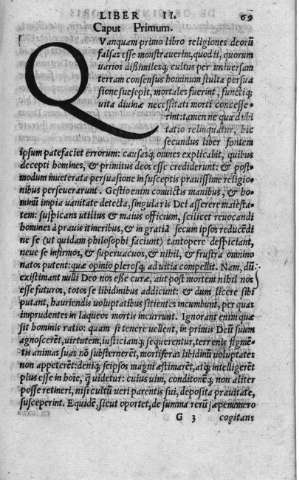 LIBER II. 69
Caput Primum.
QVanquam primo libro religiones deorũ
falsas esse monstrauerim, quodij, quorum
varios dissimilesq; cultus per vniuersam
terram consensus hominum stulta persua
sione suscepit, mortales fuerint, functiq;
vita diuinæ necessitati morti concesse-
rint: tamen ne qua dubi
tatio relinquatur, hic
secundus liber fontem
ipsum patefaciet errorum: causasq; omnes explicabit, quibus
decepti homines, & primitus deos esse crediderunt: & post-
modum inueterata persuasione in susceptis prauissime religio-
nibus perseuerarunt. Gestio enim conuictis inanibus, & ho-
minũ impia vanitate detecta, singularis Dei asserere maiesta-
tem: suscipans vtilius & maius officium, scilicet reuocandi
homines à prauis itineribus, & in gratiã secum ipsos reducẽdi
ne se (ut quidam philosophi faciunt) tantopere despiciant,
neue se infirmos, & superuacuos, & nihil, & frustra omnino
natos putent: quæ opinio plerosq; ad vitia compellit. Nam, dũ
existimant nulli Deo nos esse curæ, aut post mortem nihil nos
esse futuros, totos se libidinibus addicunt: & dum licere sibi
putant, hauriendis voluptatibus sitientes incumbunt, per quas
imprudentes in laqueos mortis incurrunt. Ignorant enim quæ
sit hominis ratio: quam si tenere vellent, in primis Deũ suum
agnoscerẽt, virtutem, iusticiamq; sequerentur, terrenis figmẽ-
tis animas suas nõ substernerẽt, mortiferas libidinũ voluptates
non appeterẽt: deniq; seipsos magni æstimarẽt, atq; intelligerẽt
plus esse in hoĩe, q̃ videtur: cuius vim, conditionẽq; non aliter
posse retineri, nisi cultũ ueri parentis sui, deposita prauitate,
susceperint. Equidẽ, sicut oportet, de summa rerũ sæpenumero
G 3 cogitans